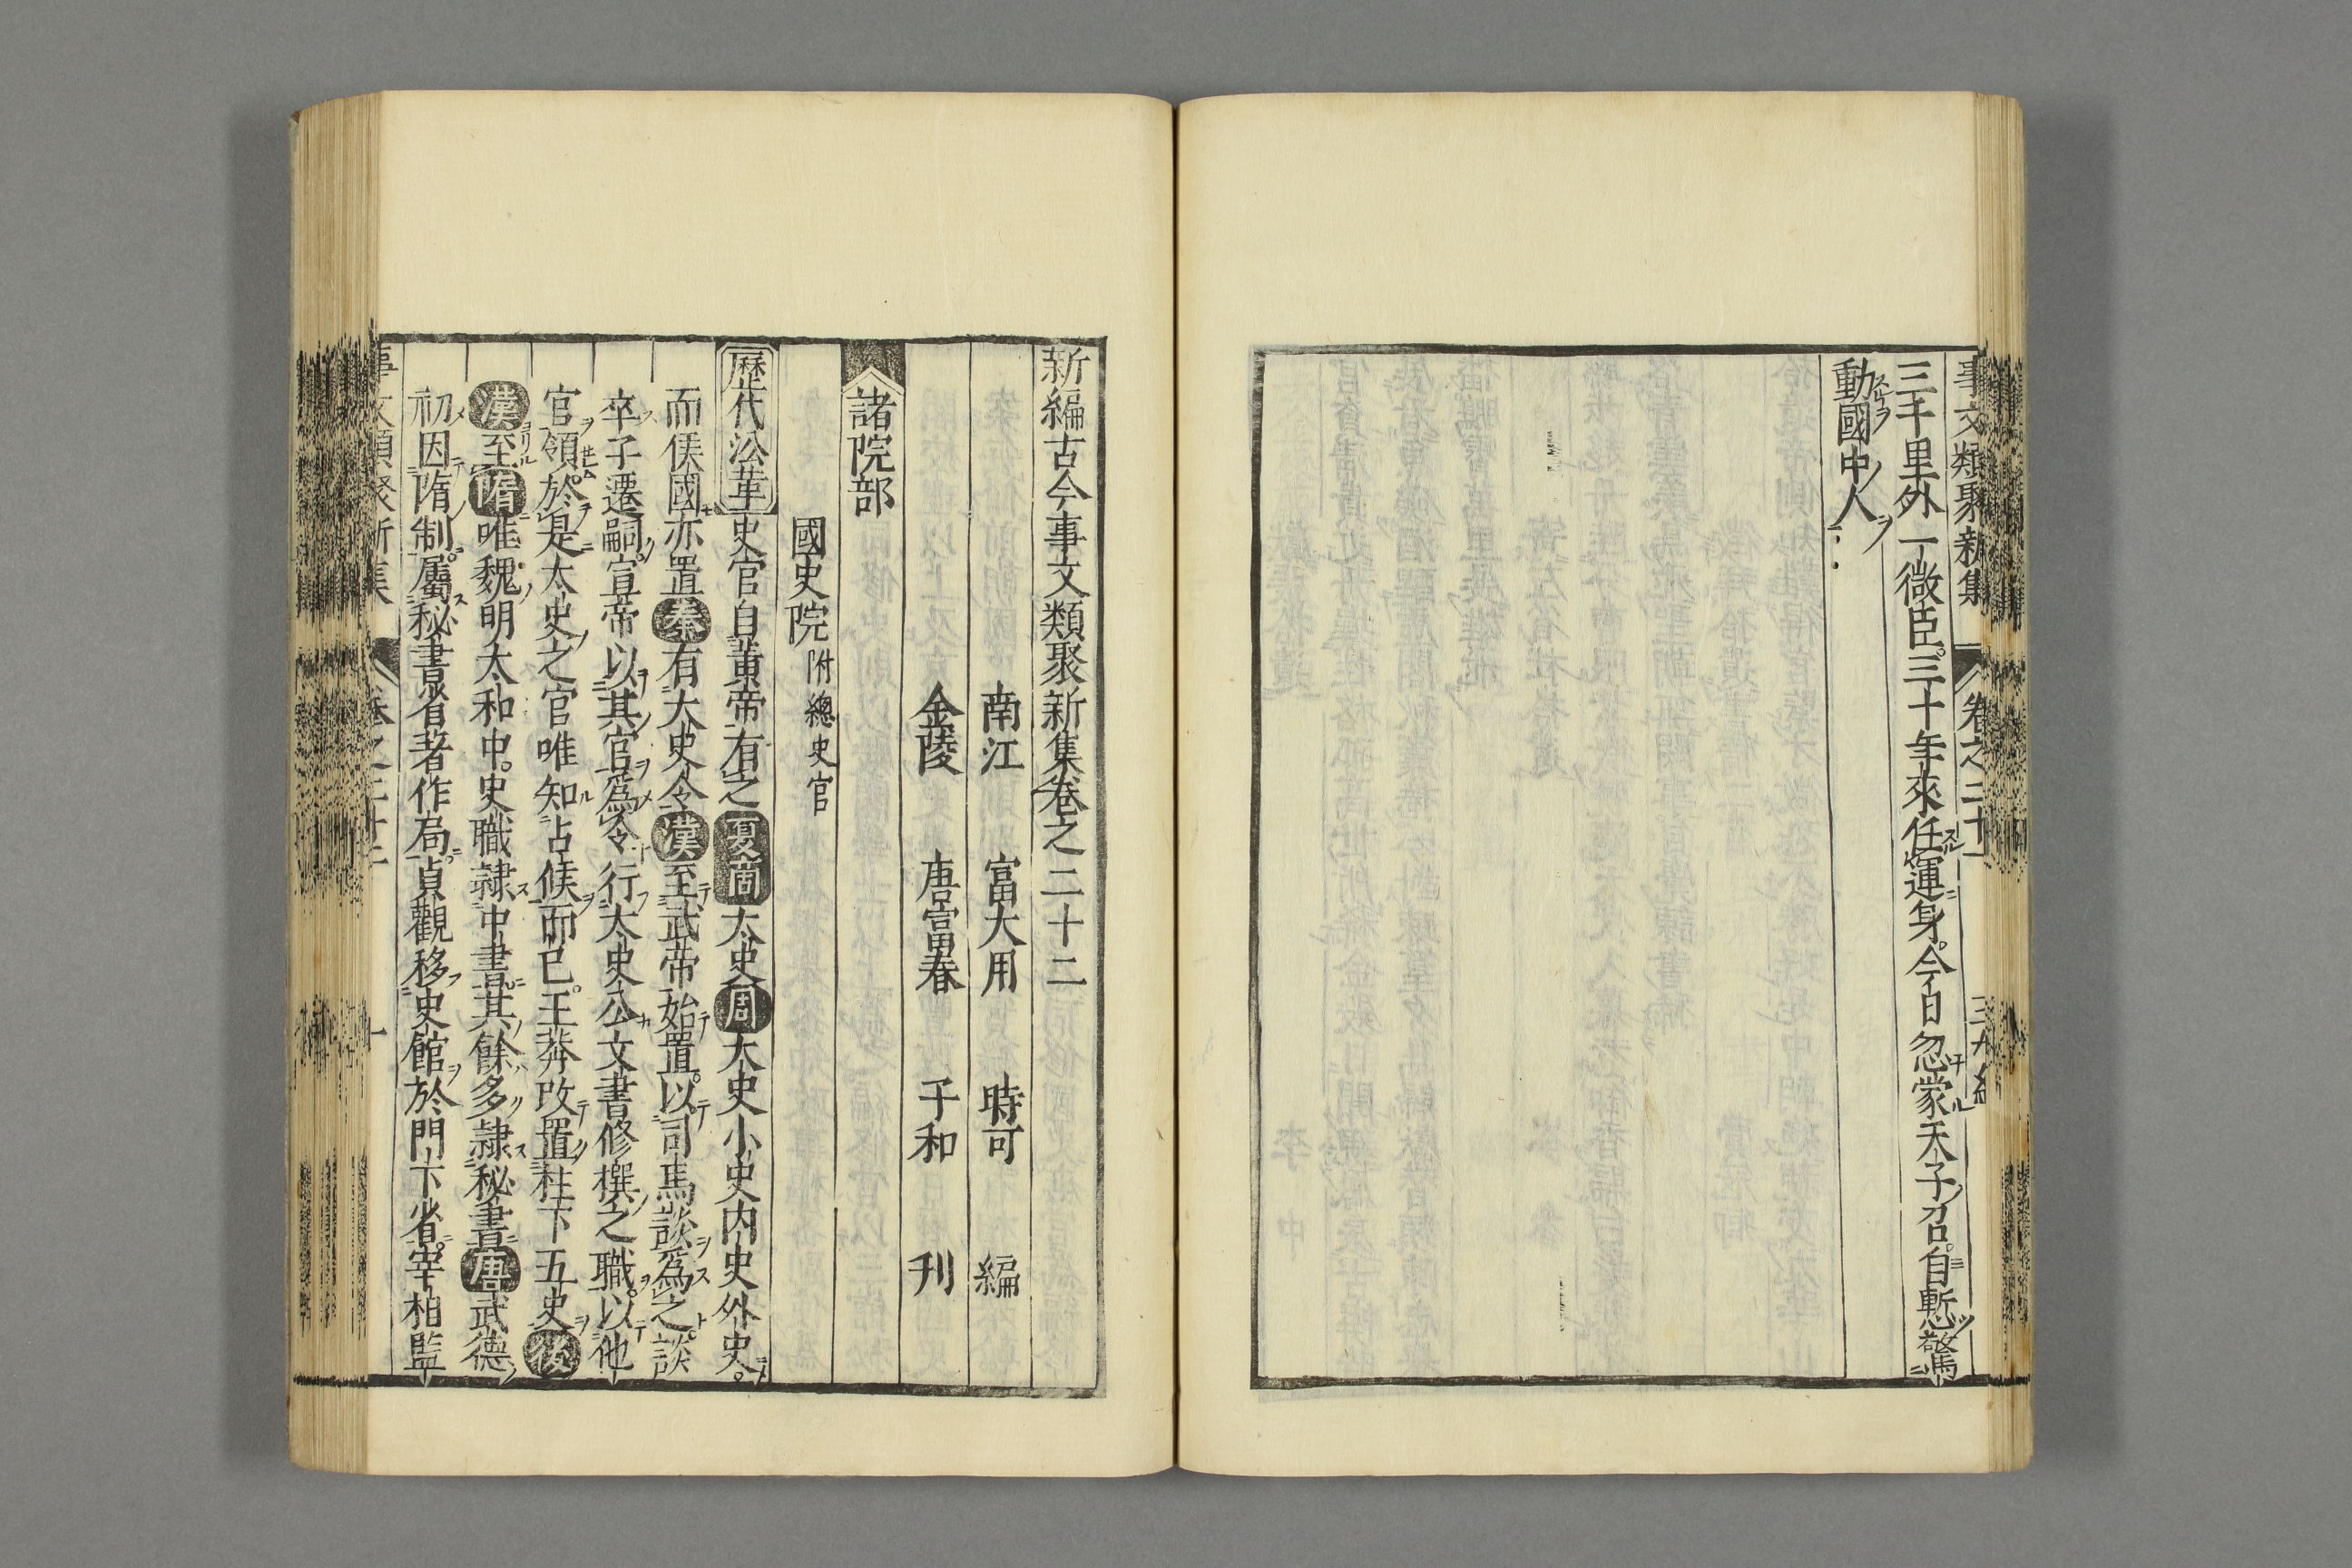 事文類聚新集 卷之二十一
三千里外一微臣三十年來任運身今日忽蒙天子召自慙驚
動國中人
新編古今事文類聚新集卷之二十二
南江 富大用 時可 編
金陵 唐富春 子和 刊
諸院部
國史院 附總史官
歷代沿革史官自黃帝有之夏商太史周太史小史内史外史
而侯國亦置秦有太史令漢至武帝始置以司馬談爲之談
卒子遷嗣宣帝以其官爲令行太史公文書修撰之職以他
官領於是太史之官唯知占候而已王莽改置柱下五史後
漢至隋唯魏明太和中史職隷中書其餘多隷秘書唐武德
初因隋制屬秘書省著作局貞觀移史館於門下省宰相監
事文類聚新集 卷之二十二 一